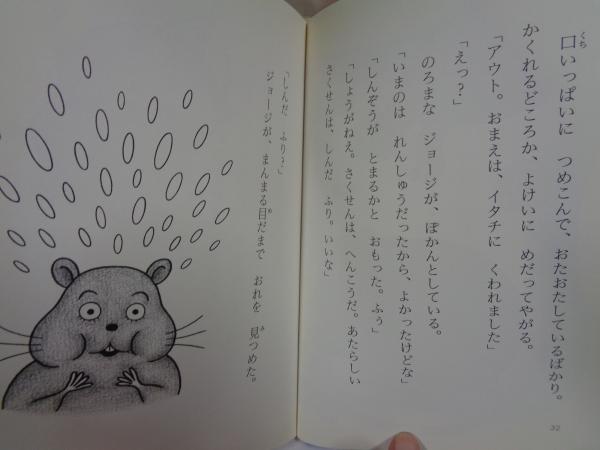 口いっぱいに　つめこんで、おたおたしているばかり。
くち
かくれるどころか、よけいに　めだってやがる。
「アウト。おまえは、イタチに　くわれました」
「えっ？」
のろまな　ジョージが、ぽかんとしている。
「いまのは　れんしゅうだったから、よかったけどな」
「しんぞうが　とまるかと　おもった。ふぅ」
「しょうがねえ。さくせんは、へんこうだ。あたらしい
さくせんは、しんだ　ふり。いいな」
32
「しんだ　ふり？」
ジョージが、まんまる目だまで　おれを　見つめた。
め
み